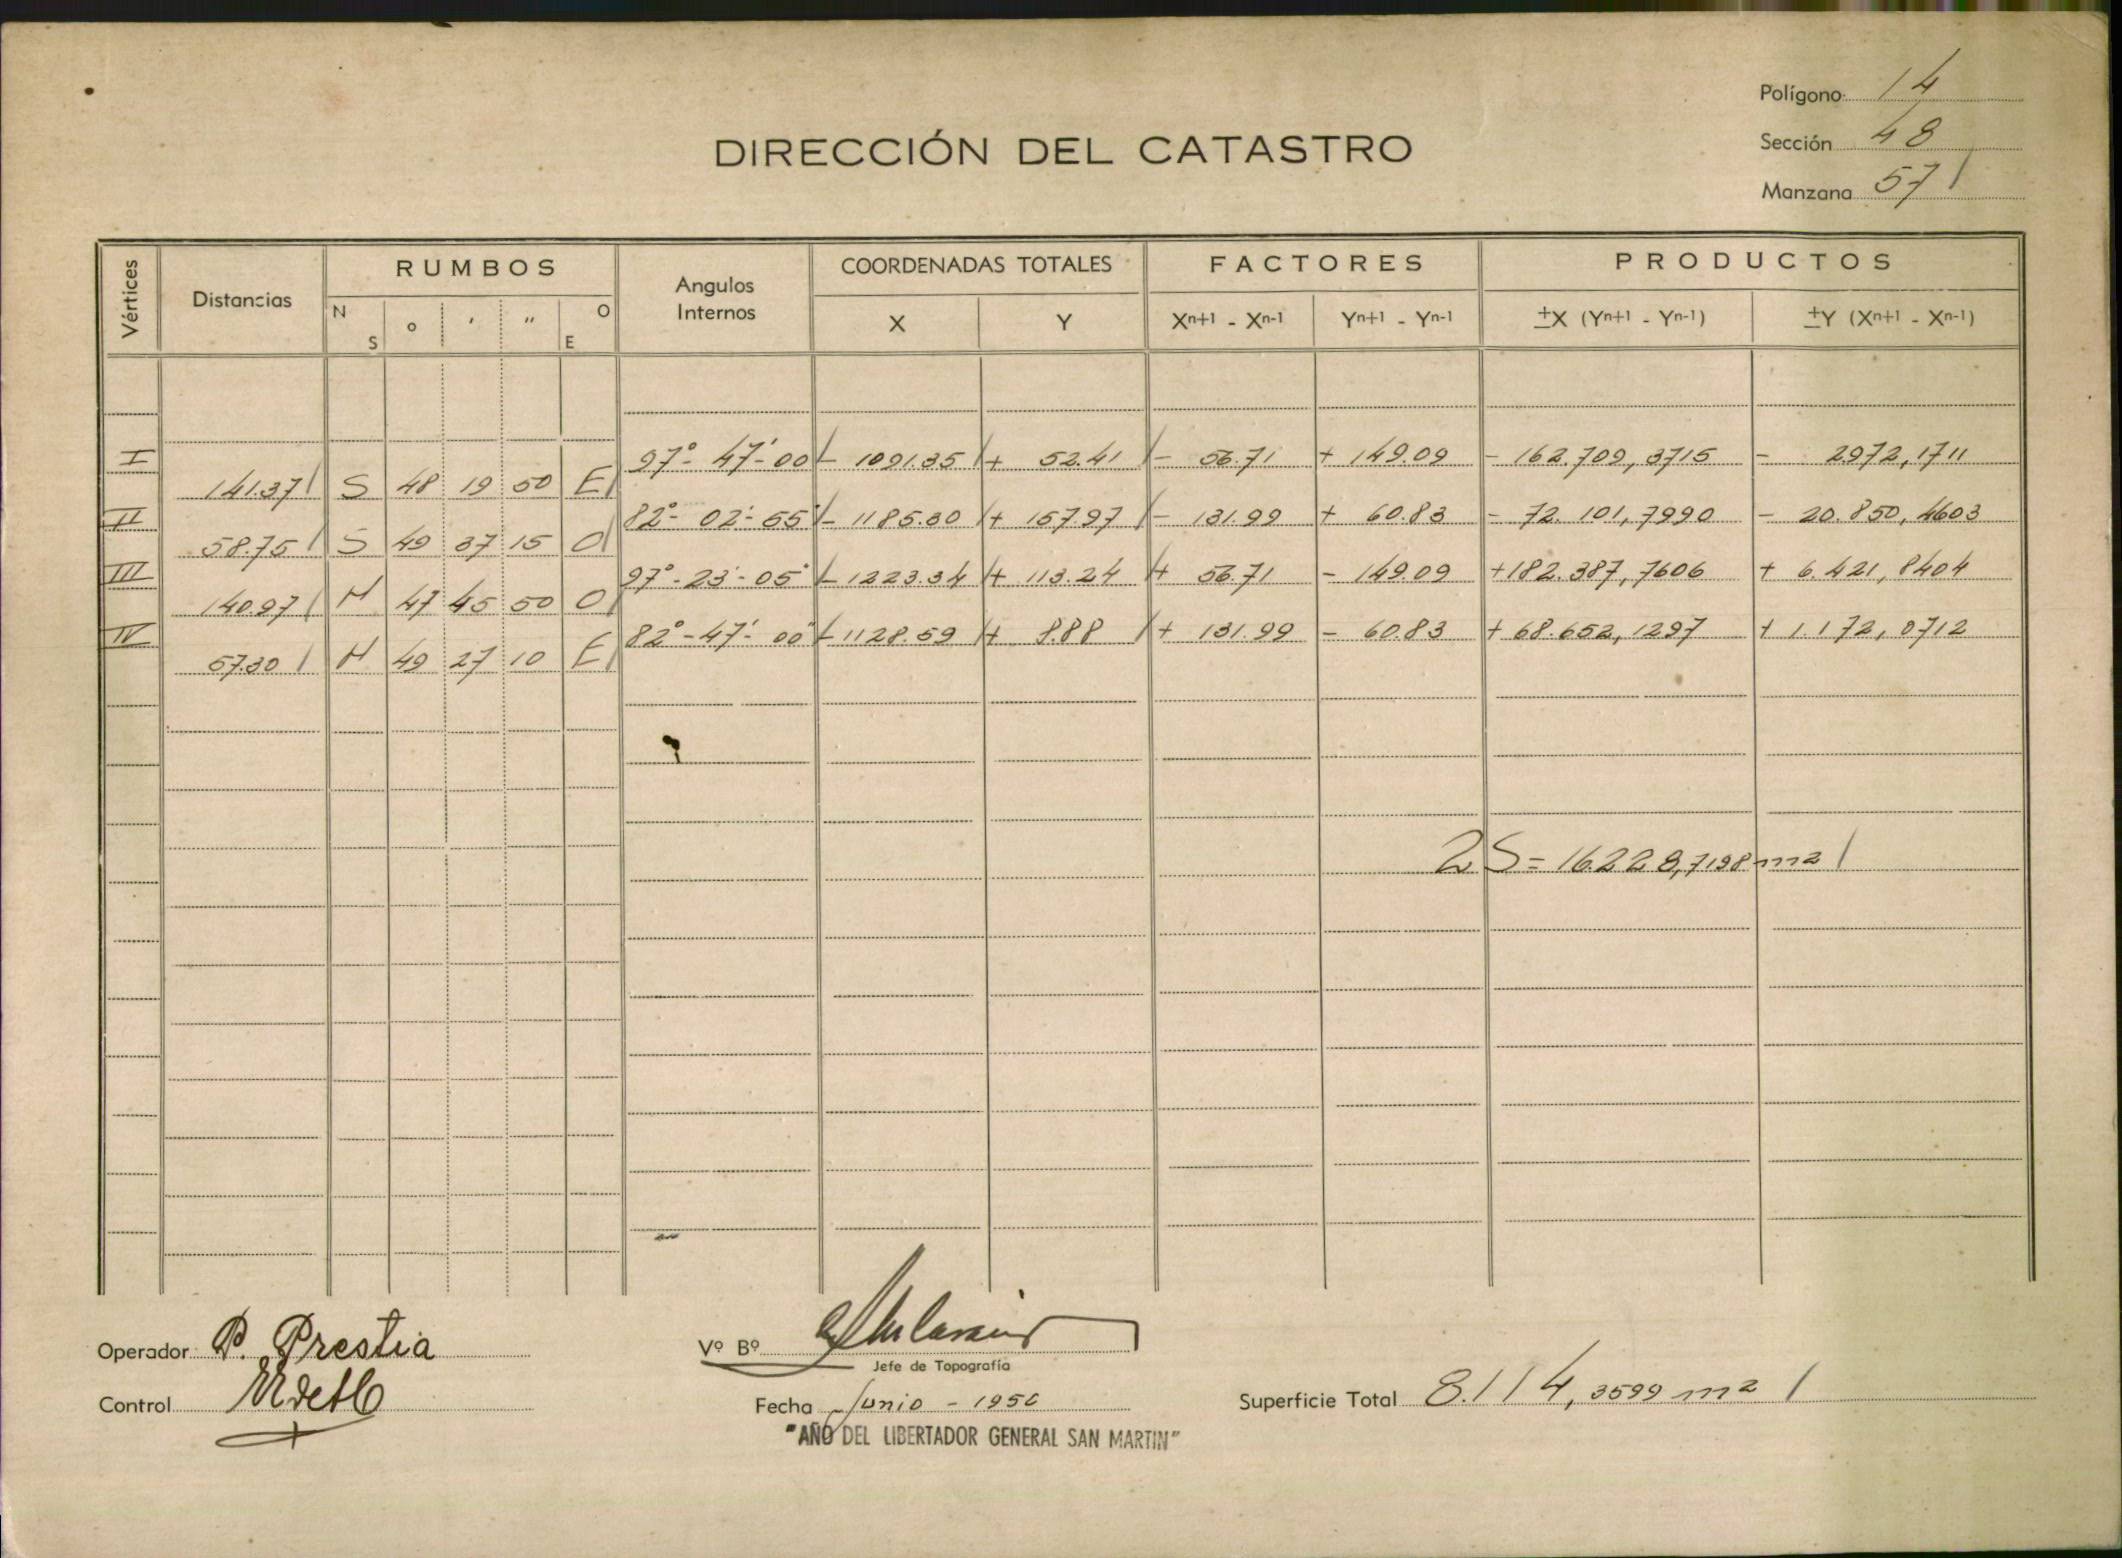 Polígono 14
Sección 48
Manzana 57
DIRECCIÓN DEL CATASTRO
Vértices Distancias RUMBOS Angulos Internos COORDENADAS TOTALES FACTORES PRODUCTOS
N S ° ' " O E X Y Xn+1 - Xn-1 Yn+1 - Yn-1 ±X (Yn+1 - Yn-1) ±Y (Xn+1 - Xn-1)
I 97° - 47' - 00 - 1091.35 + 52.41 - 56.71 + 149.09 - 162.709,3715 - 2972,1711
141.37 S 48 19 50 E
II 82° - 02' - 55" - 1185.30 + 157.97 - 131.99 + 60.83 - 72.101,7990 - 20.850,4603
58.75 S 49 37 15 O
III 97° - 23' - 05" - 1223.34 + 113.24 + 56.71 - 149.09 + 182.387,7606 + 6.421,8404
140.97 N 47 45 50 O
IV 82° - 47' - 00" - 1128.59 + 8.88 + 131.99 - 60.83 + 68.652,1297 + 1.172,0712
57.30 N 49 27 10 E
2 S = 16.228,7198 m2
Operador P. Prestia
Vº Bº
Jefe de Topografía
Control
Fecha Junio - 1950
Superficie Total 8.114,3599 m2
"AÑO DEL LIBERTADOR GENERAL SAN MARTIN"